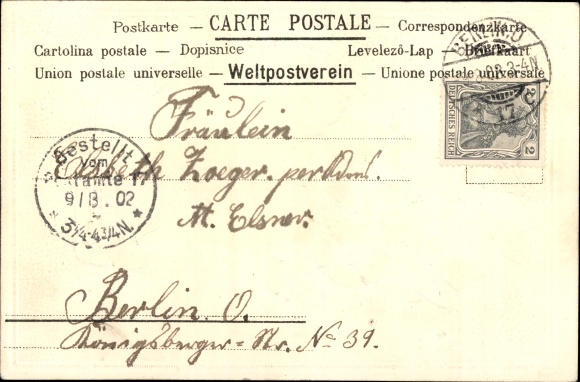 Postkarte – CARTE POSTALE – Correspondenzkarte
Cartolina postale – Dopisnice Levelező-Lap – Briefkaart
Union postale universelle – Weltpostverein – Unione postale universale
DEUTSCHES REICH
2
17.
Fräulein
Elsbeth Zoeger. per Adr.
M. Elsner.
Bestellt
vom
Postamte 17.
9/8.02
3¼-4¾N.
Berlin. O.
Königsberger-Str. No 39.